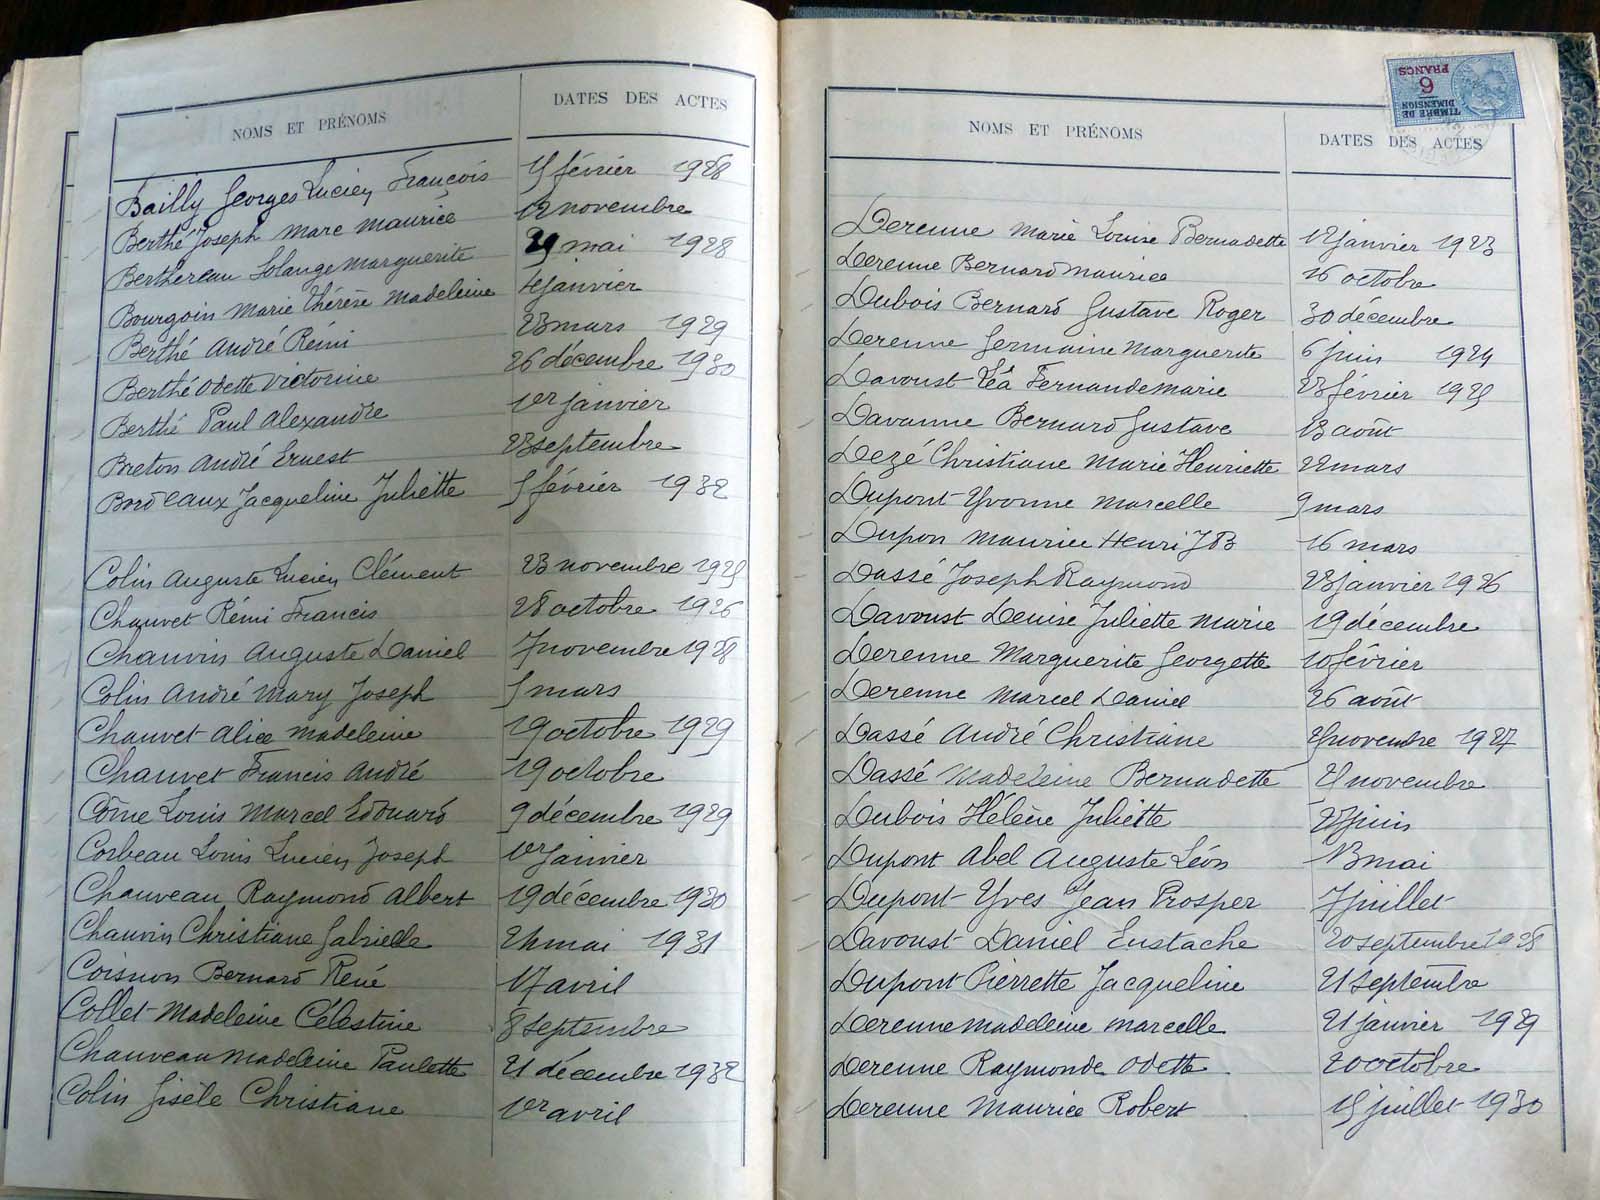 NOMS ET PRÉNOMS DATES DES ACTES
Bailly Georges Lucien François 15 février 1928
Berthé Joseph Marc Maurice 12 novembre
Berthereau Solange Marguerite 29 mai 1928
Bourgoin Marie Thérèse Madeleine 4 janvier
Berthé André Rémi 23 mars 1929
Berthé Odette Victorine 26 décembre 1930
Berthé Paul Alexandre 1er janvier
Breton André Ernest 23 septembre
Bordeaux Jacqueline Juliette 5 février 1932
Colin Auguste Lucien Clément 23 novembre 1925
Chauvet Rémi Francis 28 octobre 1926
Chauvin Auguste Daniel 7 novembre 1928
Colin André Mary Joseph 5 mars
Chauvet Alice Madeleine 19 octobre 1929
Chauvet Francis André 19 octobre
Côme Louis Marcel Edouard 9 décembre 1929
Corbeau Louis Lucien Joseph 1er janvier
Chauveau Raymond Albert 19 décembre 1930
Chauvin Christiane Gabrielle 24 mai 1931
Coisnon Bernard René 17 avril
Collet Madeleine Célestine 8 septembre
Chauveau Madeleine Paulette 21 décembre 1932
Colin Gisèle Christiane 1er avril
TIMBRE DE DIMENSION
6 FRANCS
NOMS ET PRÉNOMS DATES DES ACTES
Derenne Marie Louise Bernadette 12 janvier 1923
Derenne Bernard Maurice 16 octobre
Dubois Bernard Gustave Roger 30 décembre
Derenne Germaine Marguerite 6 juin 1924
Davoust Léa Fernande Marie 23 février 1925
Davanne Bernard Gustave 13 août
Dezé Christiane Marie Henriette 22 mars
Dupont Yvonne Marcelle 9 mars
Dupon Maurice Henri J B 16 mars
Dassé Joseph Raymond 28 janvier 1926
Davoust Denise Juliette Marie 19 décembre
Derenne Marguerite Georgette 10 février
Derenne Marcel Daniel 26 août
Dassé André Christiane novembre 1927
Dassé Madeleine Bernadette novembre
Dubois Hélène Juliette juin
Dupont Abel Auguste Léon 13 mai
Dupont Yves Jean Prosper 7 juillet
Davoust Daniel Eustache 20 septembre 1928
Dupont Pierrette Jacqueline 21 septembre
Derenne Madeleine Marcelle 21 janvier 1929
Derenne Raymonde Odette 20 octobre
Derenne Maurice Robert 15 juillet 1930